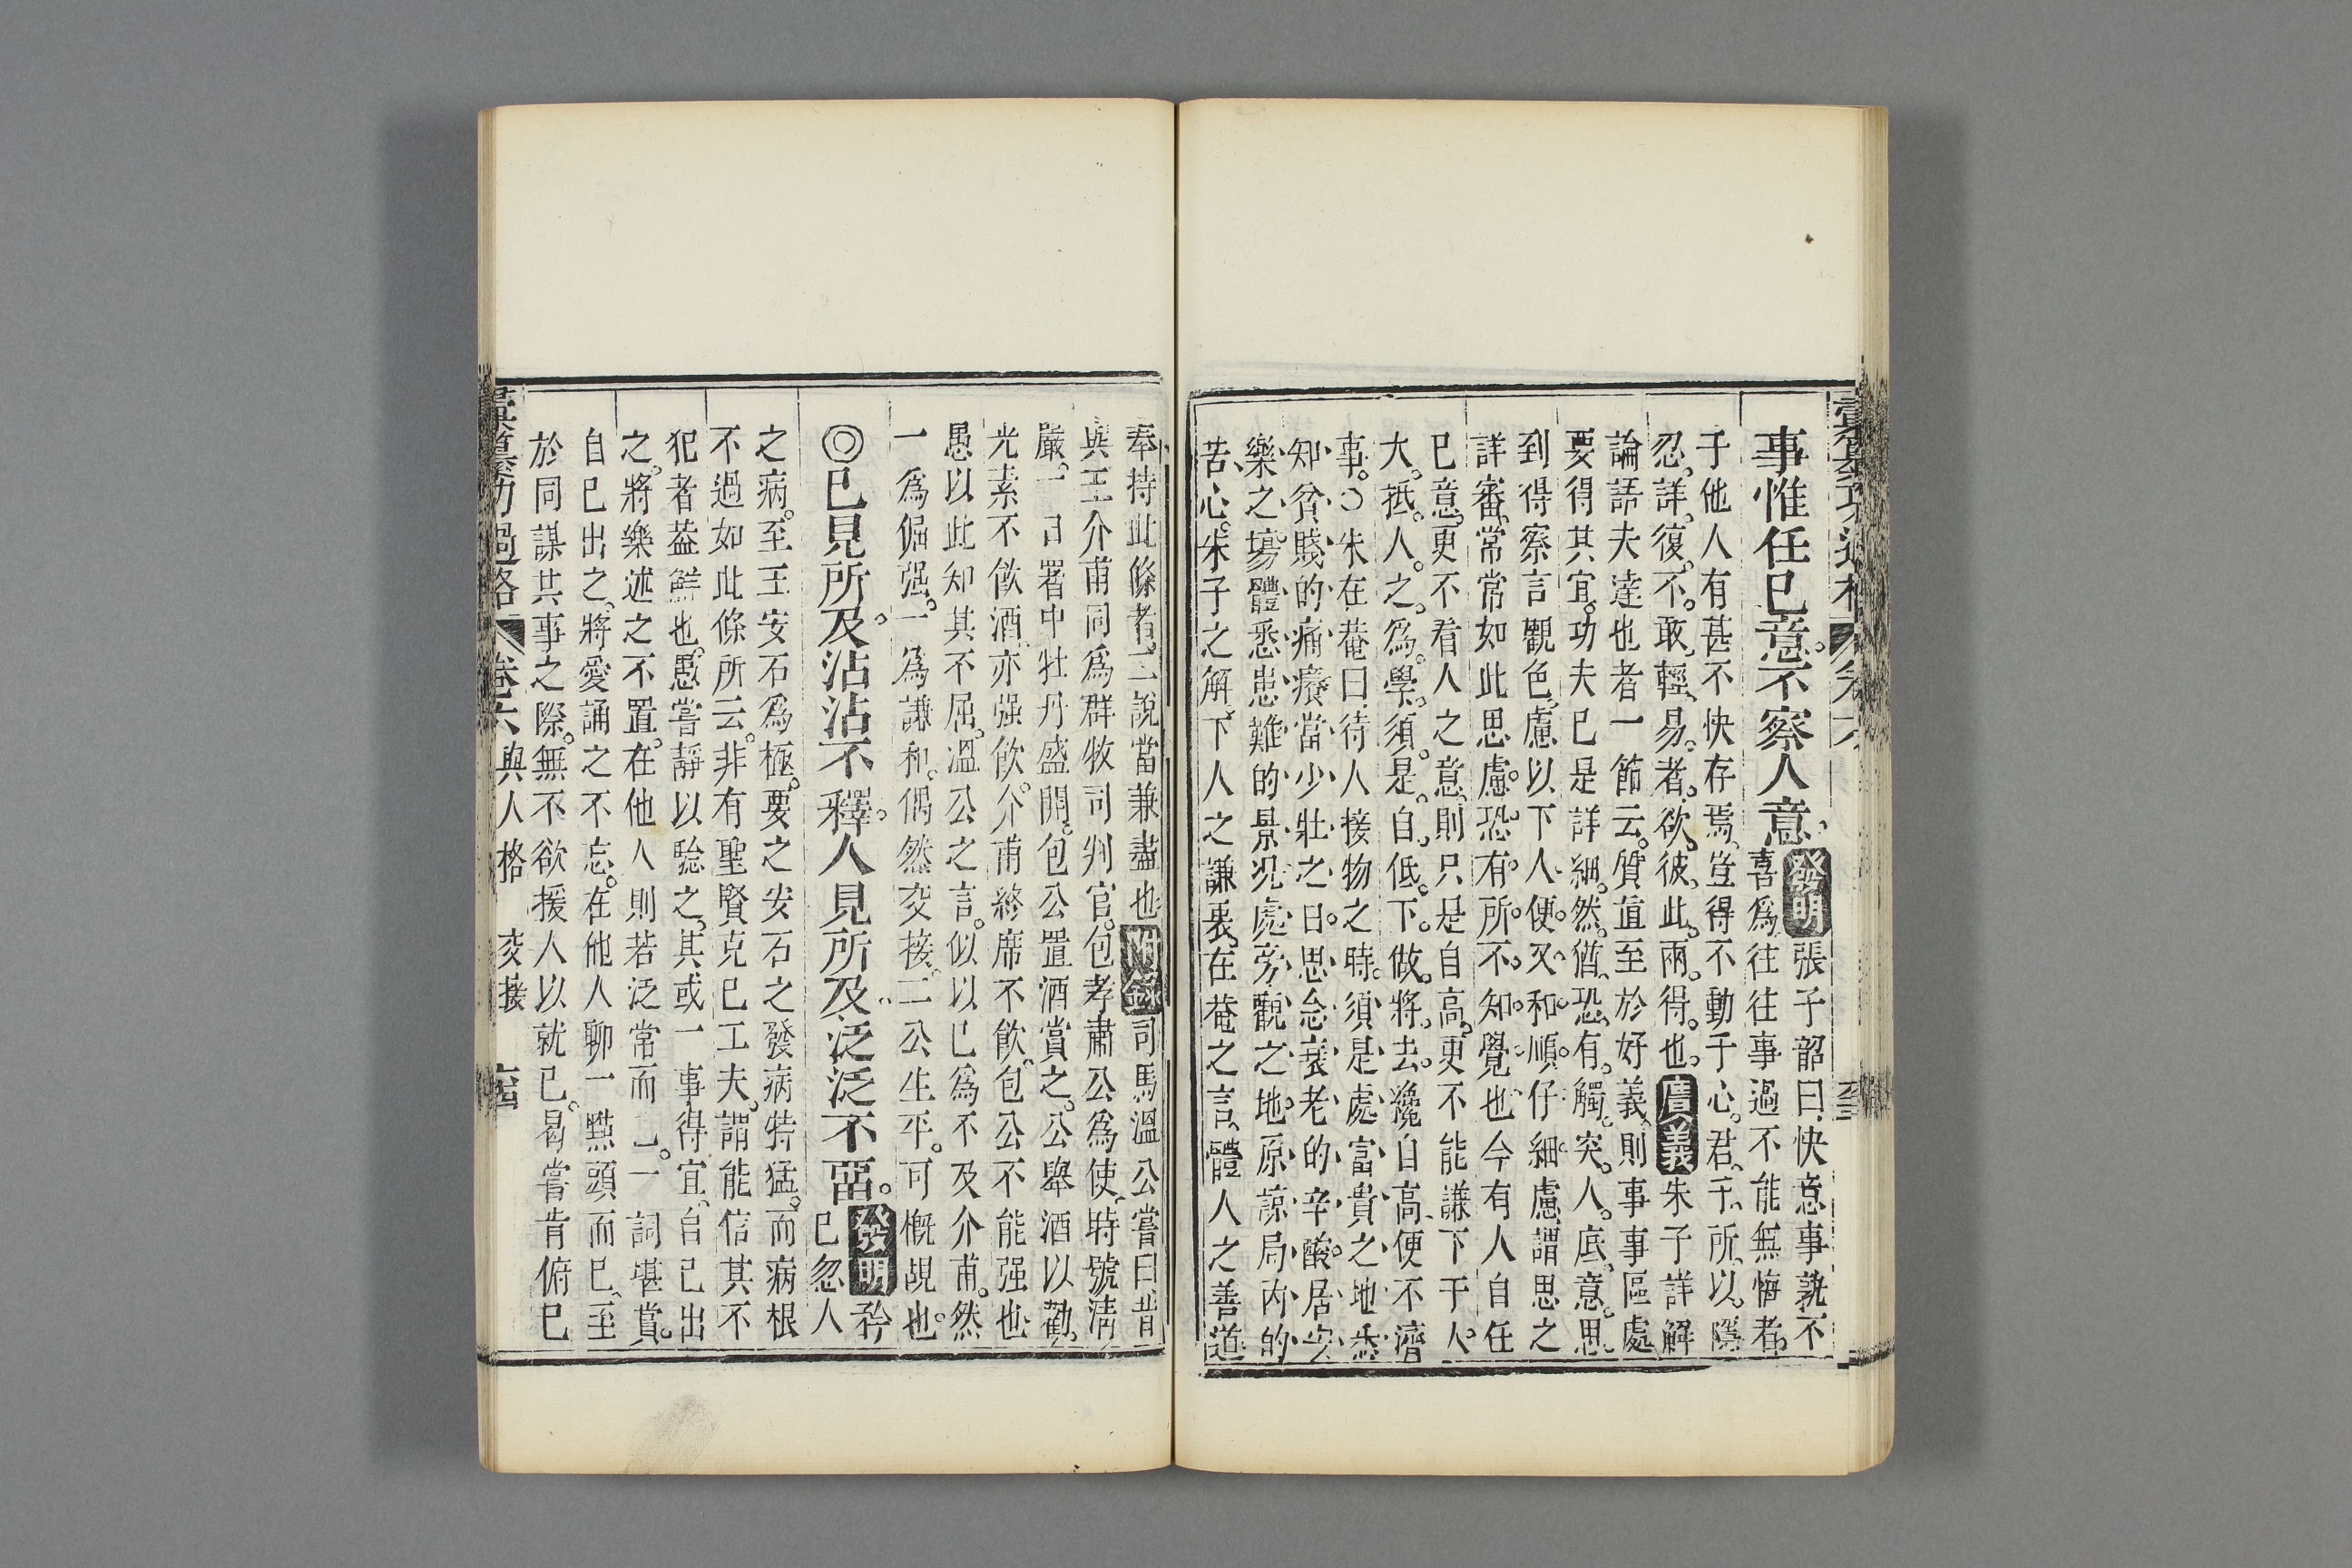 事惟任己意不察人意。發明張子韶曰快意事孰不
喜爲往往事過不能無悔者
于他人有甚不快存焉豈得不動于心君子所以隱
忍詳復不敢輕易者欲彼此兩得也廣義朱子詳解
論語夫達也者一節云質直至於好義則事事區處
要得其宜功夫已是詳細然猶恐有觸突人底意思
到得察言觀色慮以下人便又和順仔細慮謂思之
詳審常常如此思慮恐有所不知覺也今有人自任
己意更不看人之意則只是自高更不能謙下于人
大抵人之爲學須是自低下做將去纔自高便不濟
事○朱在菴曰待人接物之時須是處富貴之地悉
知貧賤的痛癢當少壯之日思念衰老的辛酸居安
樂之場體悉患難的景況處旁觀之地原諒局內的
苦心朱子之解下人之謙衷在菴之言體人之善道
奉持此條者二說當兼盡也附錄司馬溫公嘗曰昔
與王介甫同爲群牧司判官包孝肅公爲使時號清
嚴一日署中牡丹盛開包公置酒賞之公舉酒以勸
光素不飲酒亦强飲介甫終席不飲包公不能强也
愚以此知其不屈溫公之言似以已爲不及介甫然
一爲倔强一爲謙和偶然交接二公生平可槪覩也
◎已見所及沾沾不釋人見所及泛泛不畱。發明矜
己忽人
之病至王安石爲極要之安石之發病特猛而病根
不過如此條所云非有聖賢克己工夫謂能信其不
犯者葢鮮也愚嘗靜以驗之其或一事得宜自己出
之將樂述之不置在他人則若泛常而已一詞堪賞
自已出之將愛誦之不忘在他人聊一點頭而已至
於同謀共事之際無不欲援人以就己曷嘗肯俯已
彙纂功過格 卷六 與人格 交接